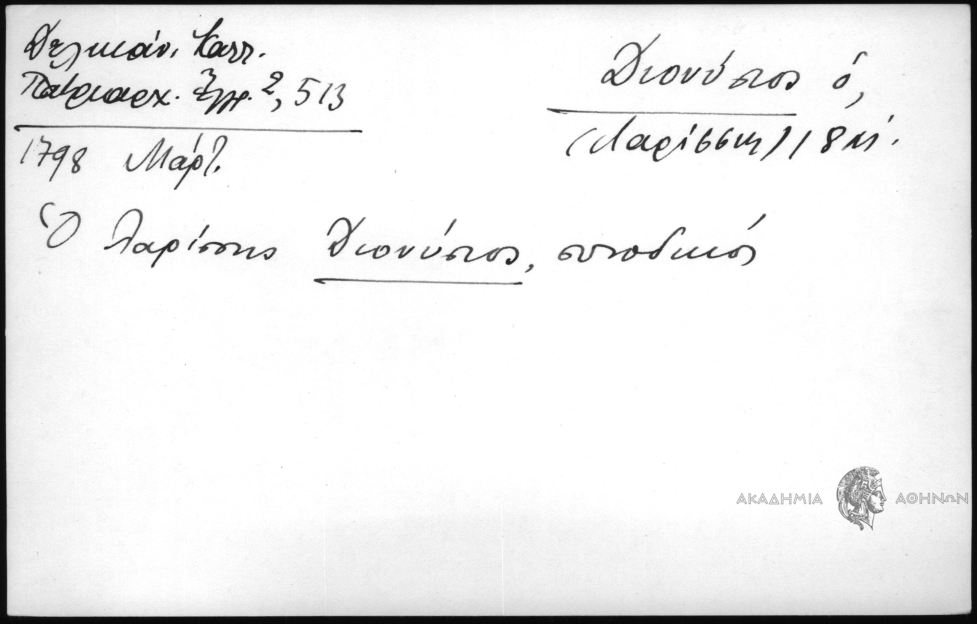 Δελικάν. Κατ.
Πατριαρχ. Ἐγγρ. 2, 513
Διονύσιος ὁ,
(Λαρίσσης) 18
1798 Μάρτ.
Ὁ Λαρίσσης Διονύσιος, συνοδικός
ΑΚΑΔΗΜΙΑ ΑΘΗΝΩΝ